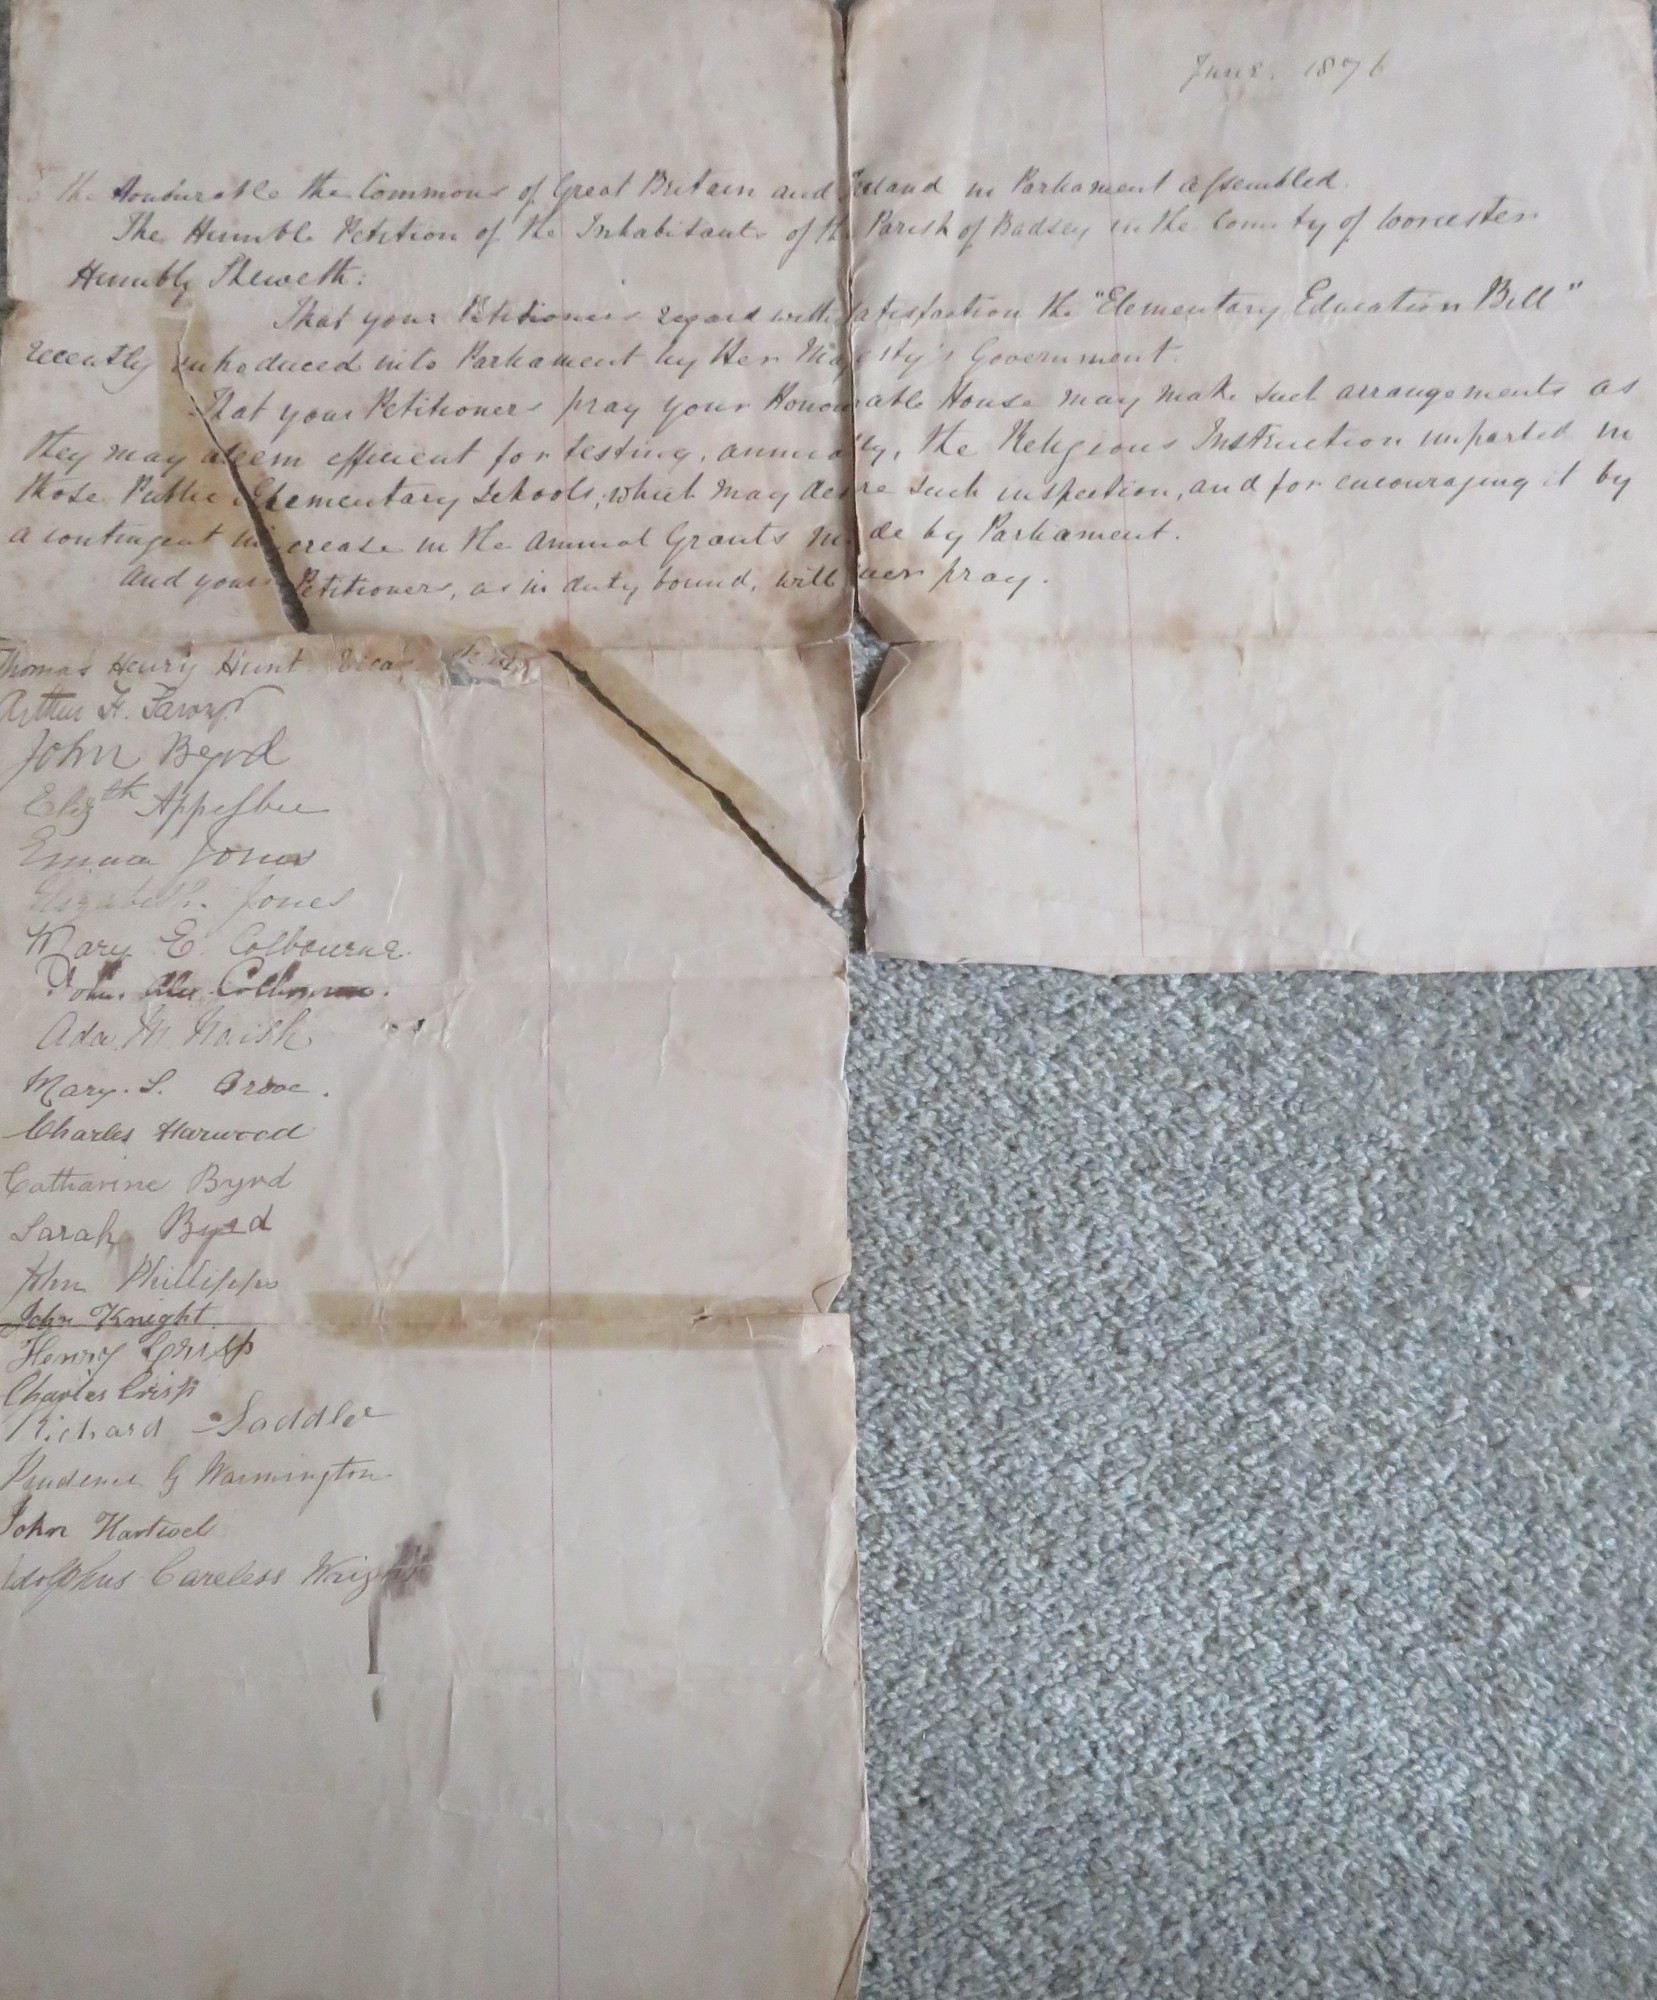 June, 1876
the Honourable the Commons of Great Britain and Ireland in Parliament assembled.
The Humble Petition of the Inhabitants of the Parish of Badsey in the County of Worcester
Humbly Sheweth:
That your Petitioners regard with satisfaction the "Elementary Education Bill"
recently introduced into Parliament by Her Majesty's Government.
That your Petitioners pray your Honourable House may make such arrangements as
they may deem efficient for testing, annually, the Religious Instruction imparted in
those Public Elementary Schools, which may desire such inspection, and for encouraging it by
a contingent increase in the annual Grants made by Parliament.
And your Petitioners, as in duty bound, will ever pray.
Thomas Henry Hunt Vicar
Arthur H.
John Byrd
Elizth Appelbee
Emma Jones
Elizabeth Jones
Mary E. Colbourne.
John Alex Colbourne.
Ada M Naish
Mary. S.
Charles Harwood
Catharine Byrd
Sarah Byrd
John Phillipps
John Knight.
Henry Crisp
Charles Crisp
Richard Saddler
Prudence G Warmington
John Hartwel
Adolphus Careless Wright